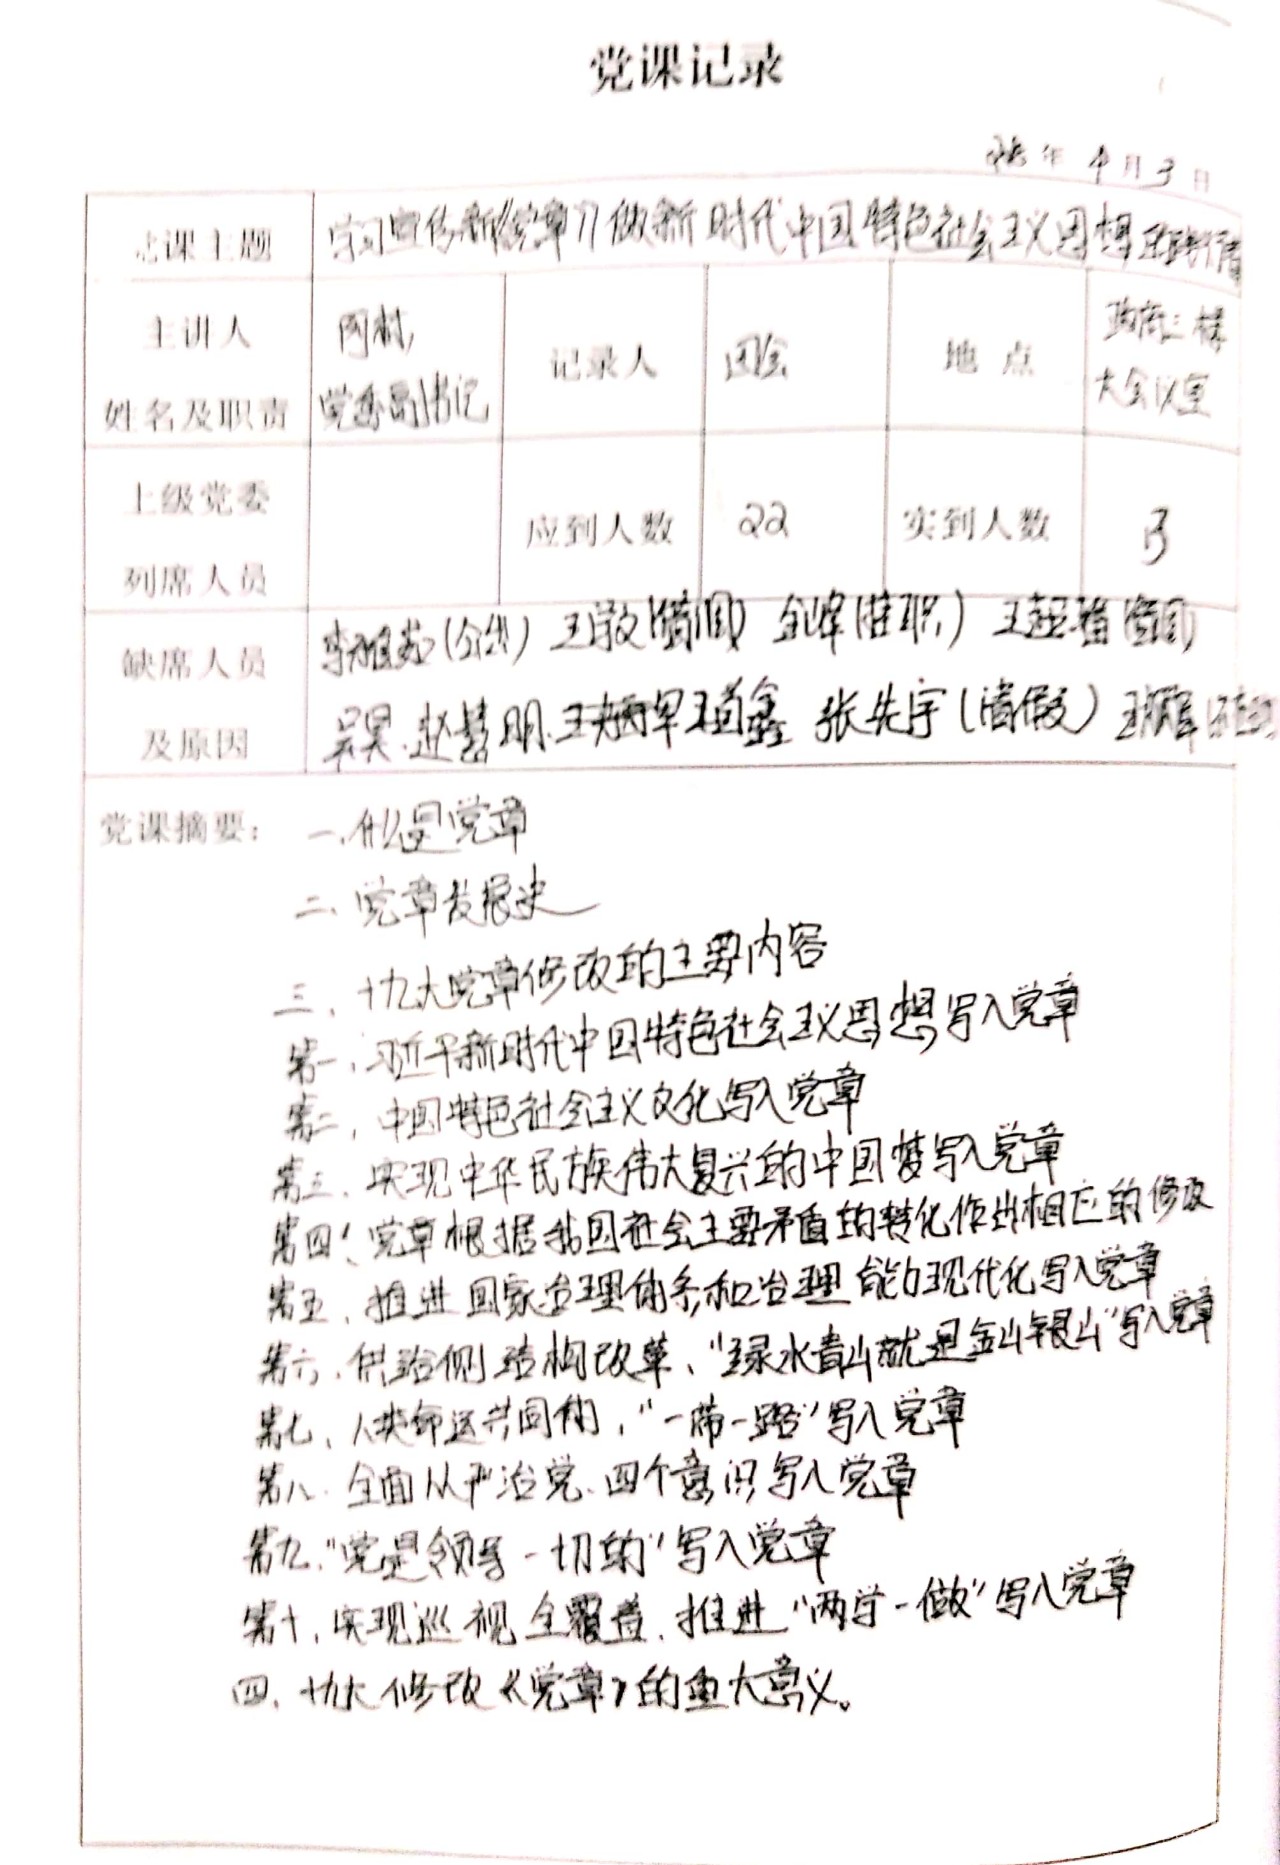 党课记录
年 4 月 3 日
课主题 学习宣传新《党章》做新时代中国特色社会主义思想 践行者
主讲人 政府三楼
姓名及职责 党委副书记 记录人 地 点 大会议室
上级党委
列席人员 应到人数 22 实到人数
缺席人员 (公出) 王 金峰(挂职) 王
及原因 吴昊、赵慧明、王 张先宇(请假) 王
党课摘要: 一、什么是党章
二、党章发展史
三、十九大党章修改的主要内容
第一,习近平新时代中国特色社会主义思想写入党章
第二,中国特色社会主义文化写入党章
第三、实现中华民族伟大复兴的中国梦写入党章
第四、党章根据我国社会主要矛盾的转化作出相应的修改
第五、推进国家治理体系和治理能力现代化写入党章
第六、供给侧结构改革、“绿水青山就是金山银山”写入党章
第七、人类命运共同体,“一带一路”写入党章
第八、全面从严治党、四个意识写入党章
第九、“党是领导一切的”写入党章
第十、实现巡视全覆盖、推进“两学一做”写入党章
四、十九大修改《党章》的重大意义。